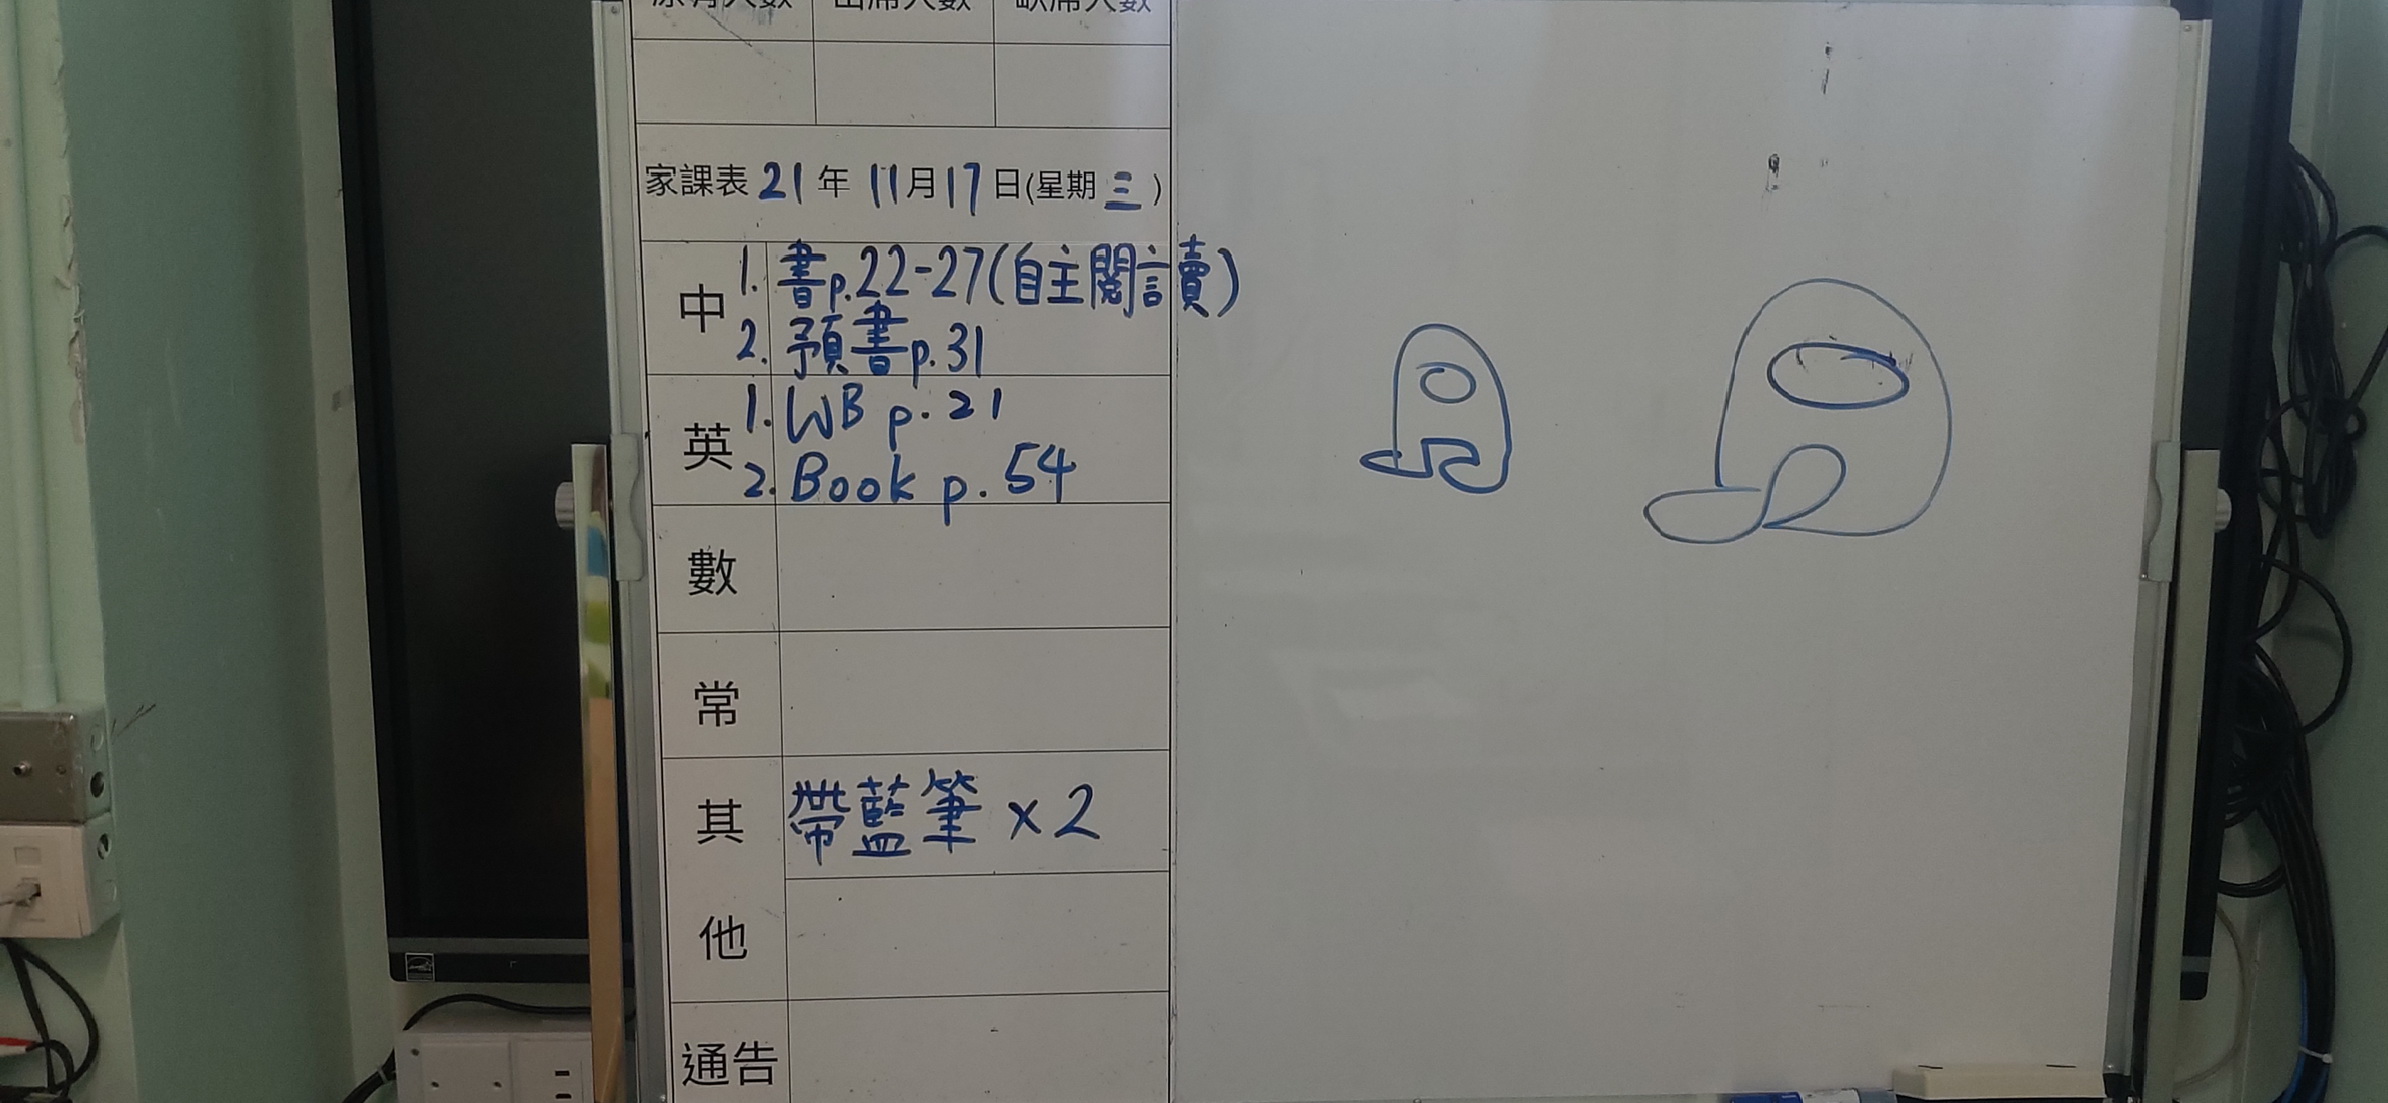 原有人數 出席人數 缺席人數
家課表 21 年 11 月 17 日(星期 三 )
中 1. 書p.22-27(自主閱讀)
2. 預書p.31
英 1. WB p.21
2. Book p.54
數
常
其他 帶藍筆 x2
通告